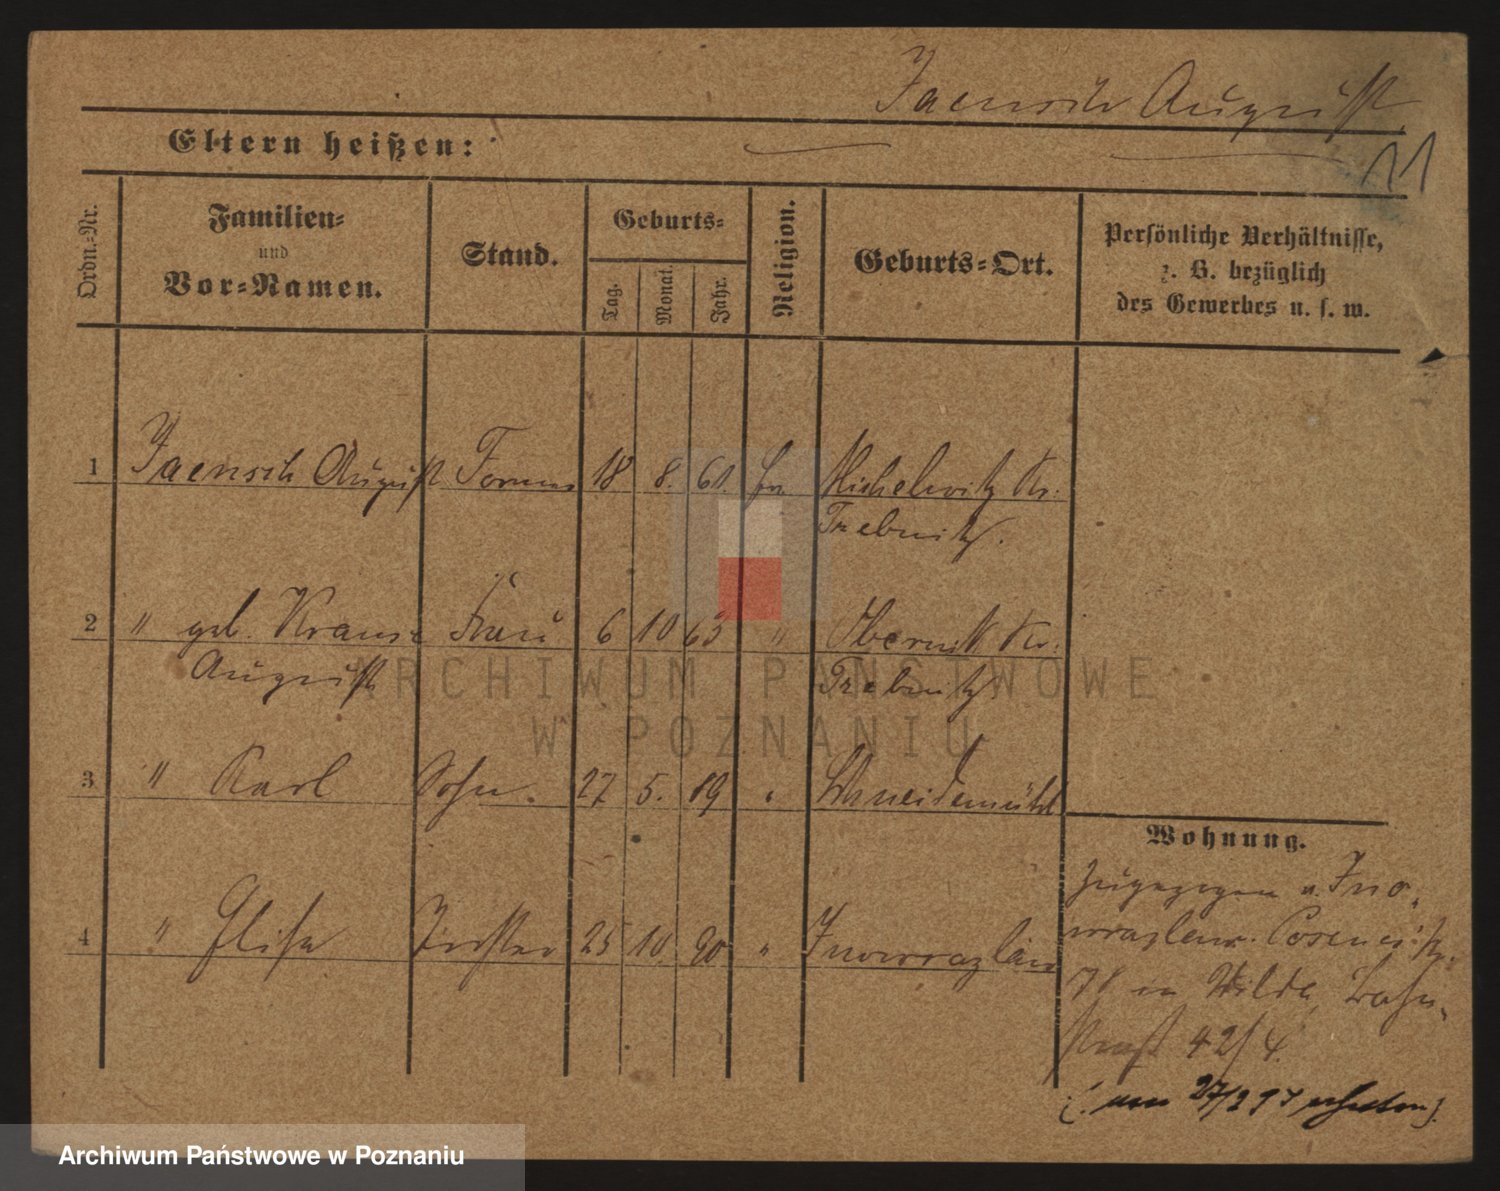 Jaensch August
11
Eltern heißen:
Ordn.-Nr.
Familien-
und
Vor-Namen.
Stand.
Geburts-
Tag.
Monat.
Jahr.
Religion.
Geburts-Ort.
Persönliche Verhältnisse,
z. B. bezüglich
des Gewerbes u. s. w.
1 Jaensch August Former 18 8. 61. Michelwitz Kr.
Trebnitz.
2 " geb. Krause Frau 6 10 63 " Obernik Kr.
August Trebnitz
3 " Karl Sohn. 27 5. 89 " Schneidemühl
4 " Elise Tochter 25 10. 90 " Inowrazlaw
Wohnung.
Zugezogen v. Ino-
wrazlaw. Posenerstr.
71 in Wilda, Bahn-
straße 42/4.
ARCHIWUM PAŃSTWOWE
W POZNANIU
Archiwum Państwowe w Poznaniu